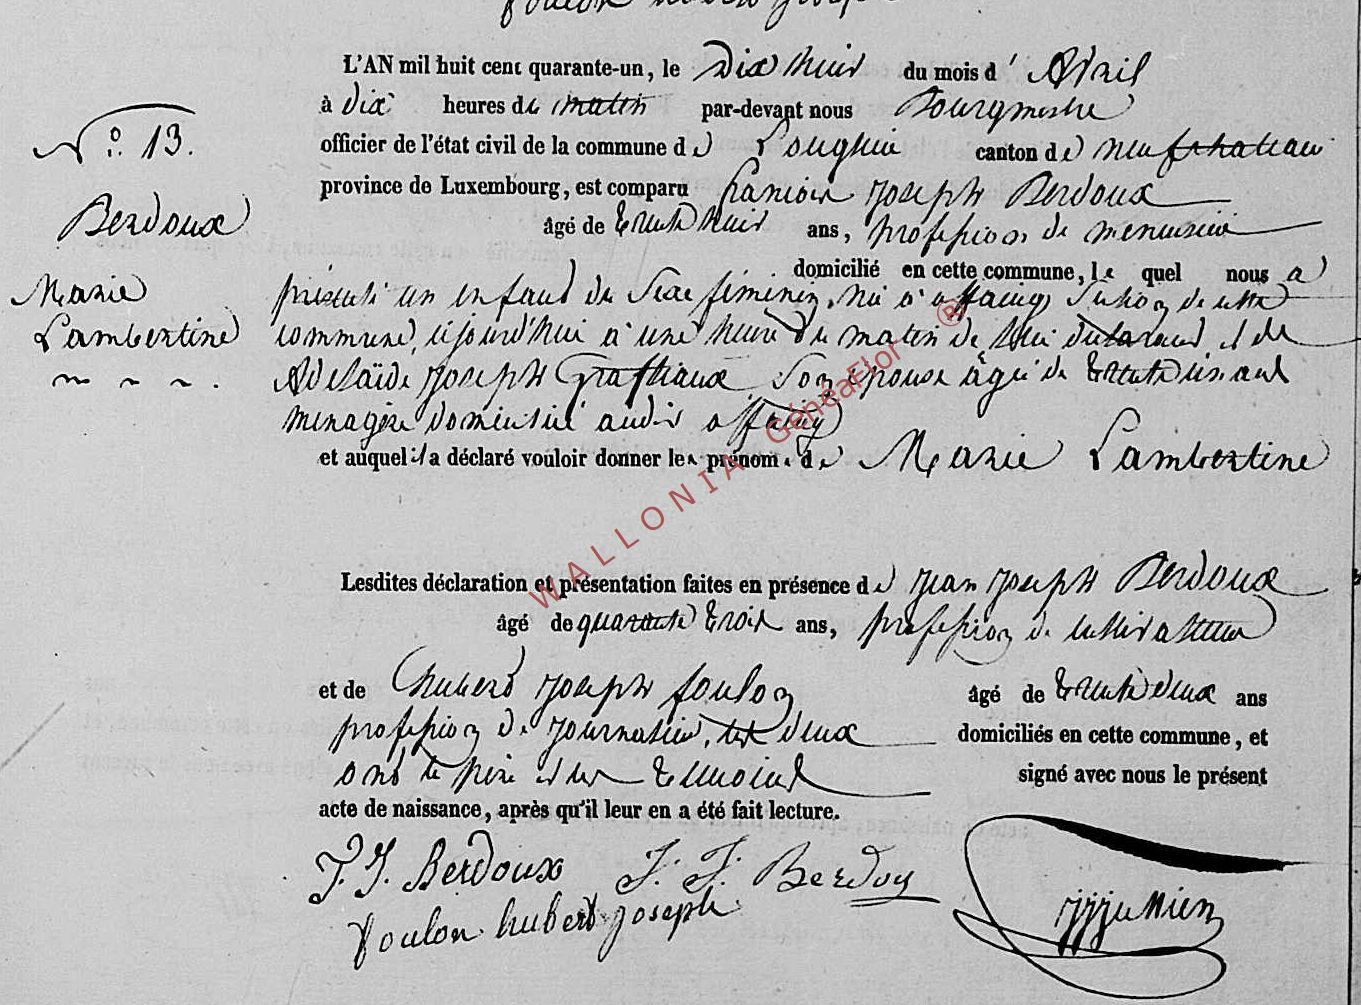 foulon hubert joseph
L'AN mil huit cent quarante-un, le dix huit du mois d' Avril
à dix heures du matin par-devant nous Bourgmestre
N° 13.
officier de l'état civil de la commune de Longlier canton de neufchateau
province de Luxembourg, est comparu françois joseph Berdoux
Berdoux
âgé de trente huit ans, profession de menuisier
domicilié en cette commune, le quel nous a
Marie
présenté un enfant du sexe féminin, né à offaing section de cette
Lambertine
commune, aujourd'hui à une heure du matin de lui déclarant et de
Adelaïde joseph Graftiaux son épouse âgée de trente six ans
menagère domiciliée audit offaing
et auquel il a déclaré vouloir donner les prénoms de Marie Lambertine
WALLONIA GénéaFlor ®
Lesdites déclaration et présentation faites en présence de jean joseph Berdoux
âgé de quarante trois ans, profession de cultivateur
et de hubert joseph foulon âgé de trente deux ans
profession de journalier, tous deux domiciliés en cette commune, et
ont le père et les témoins signé avec nous le présent
acte de naissance, après qu'il leur en a été fait lecture.
J. J. Berdoux F. J. Berdoux
foulon hubert joseph